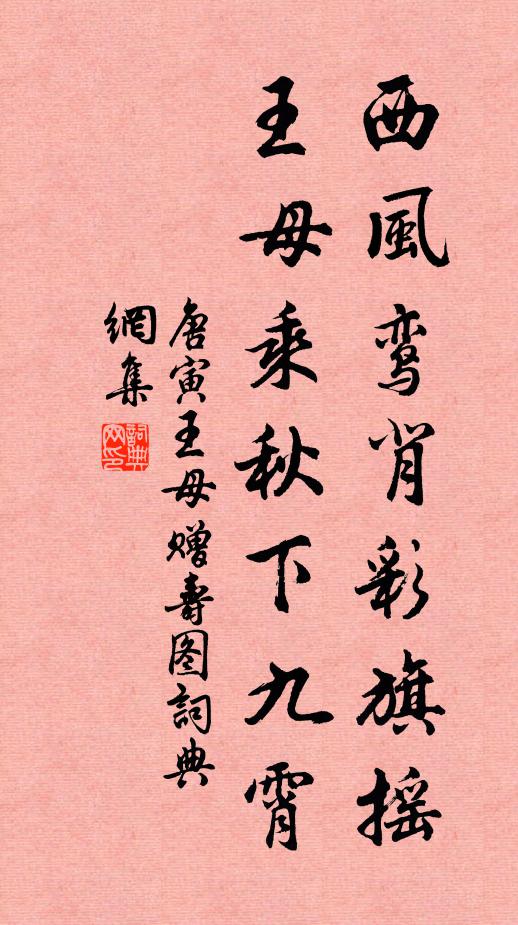 西風鸾背彩旗摇
王母乘秋下九霄
唐寅王母赠壽图詞典
網集
詞典
网印